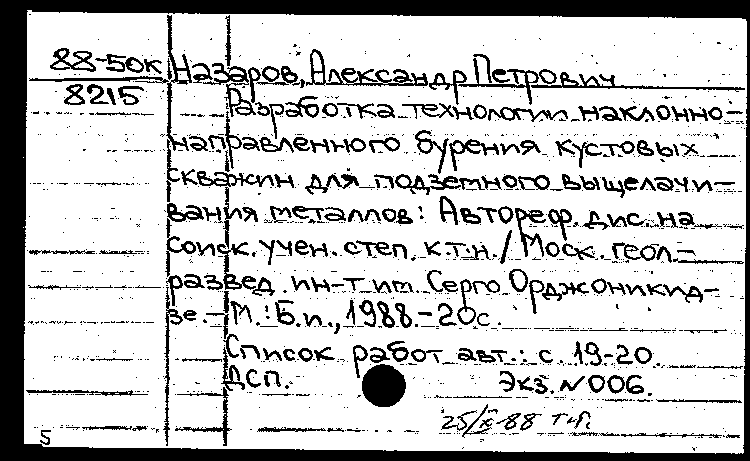 88-50к Назаров, Александр Петрович
8215 Разработка технологии наклонно-
направленного бурения кустовых
скважин для подземного выщелачи-
вания металлов: Автореф. дис. на
соиск. учен. степ. к.т.н. / Моск. геол.-
развед. ин-т им. Серго Орджоникид-
зе. - М.: Б.и., 1988. - 20с.
Список работ авт.: с. 19-20.
ДСП. Экз. N 006.
25/X-88
5